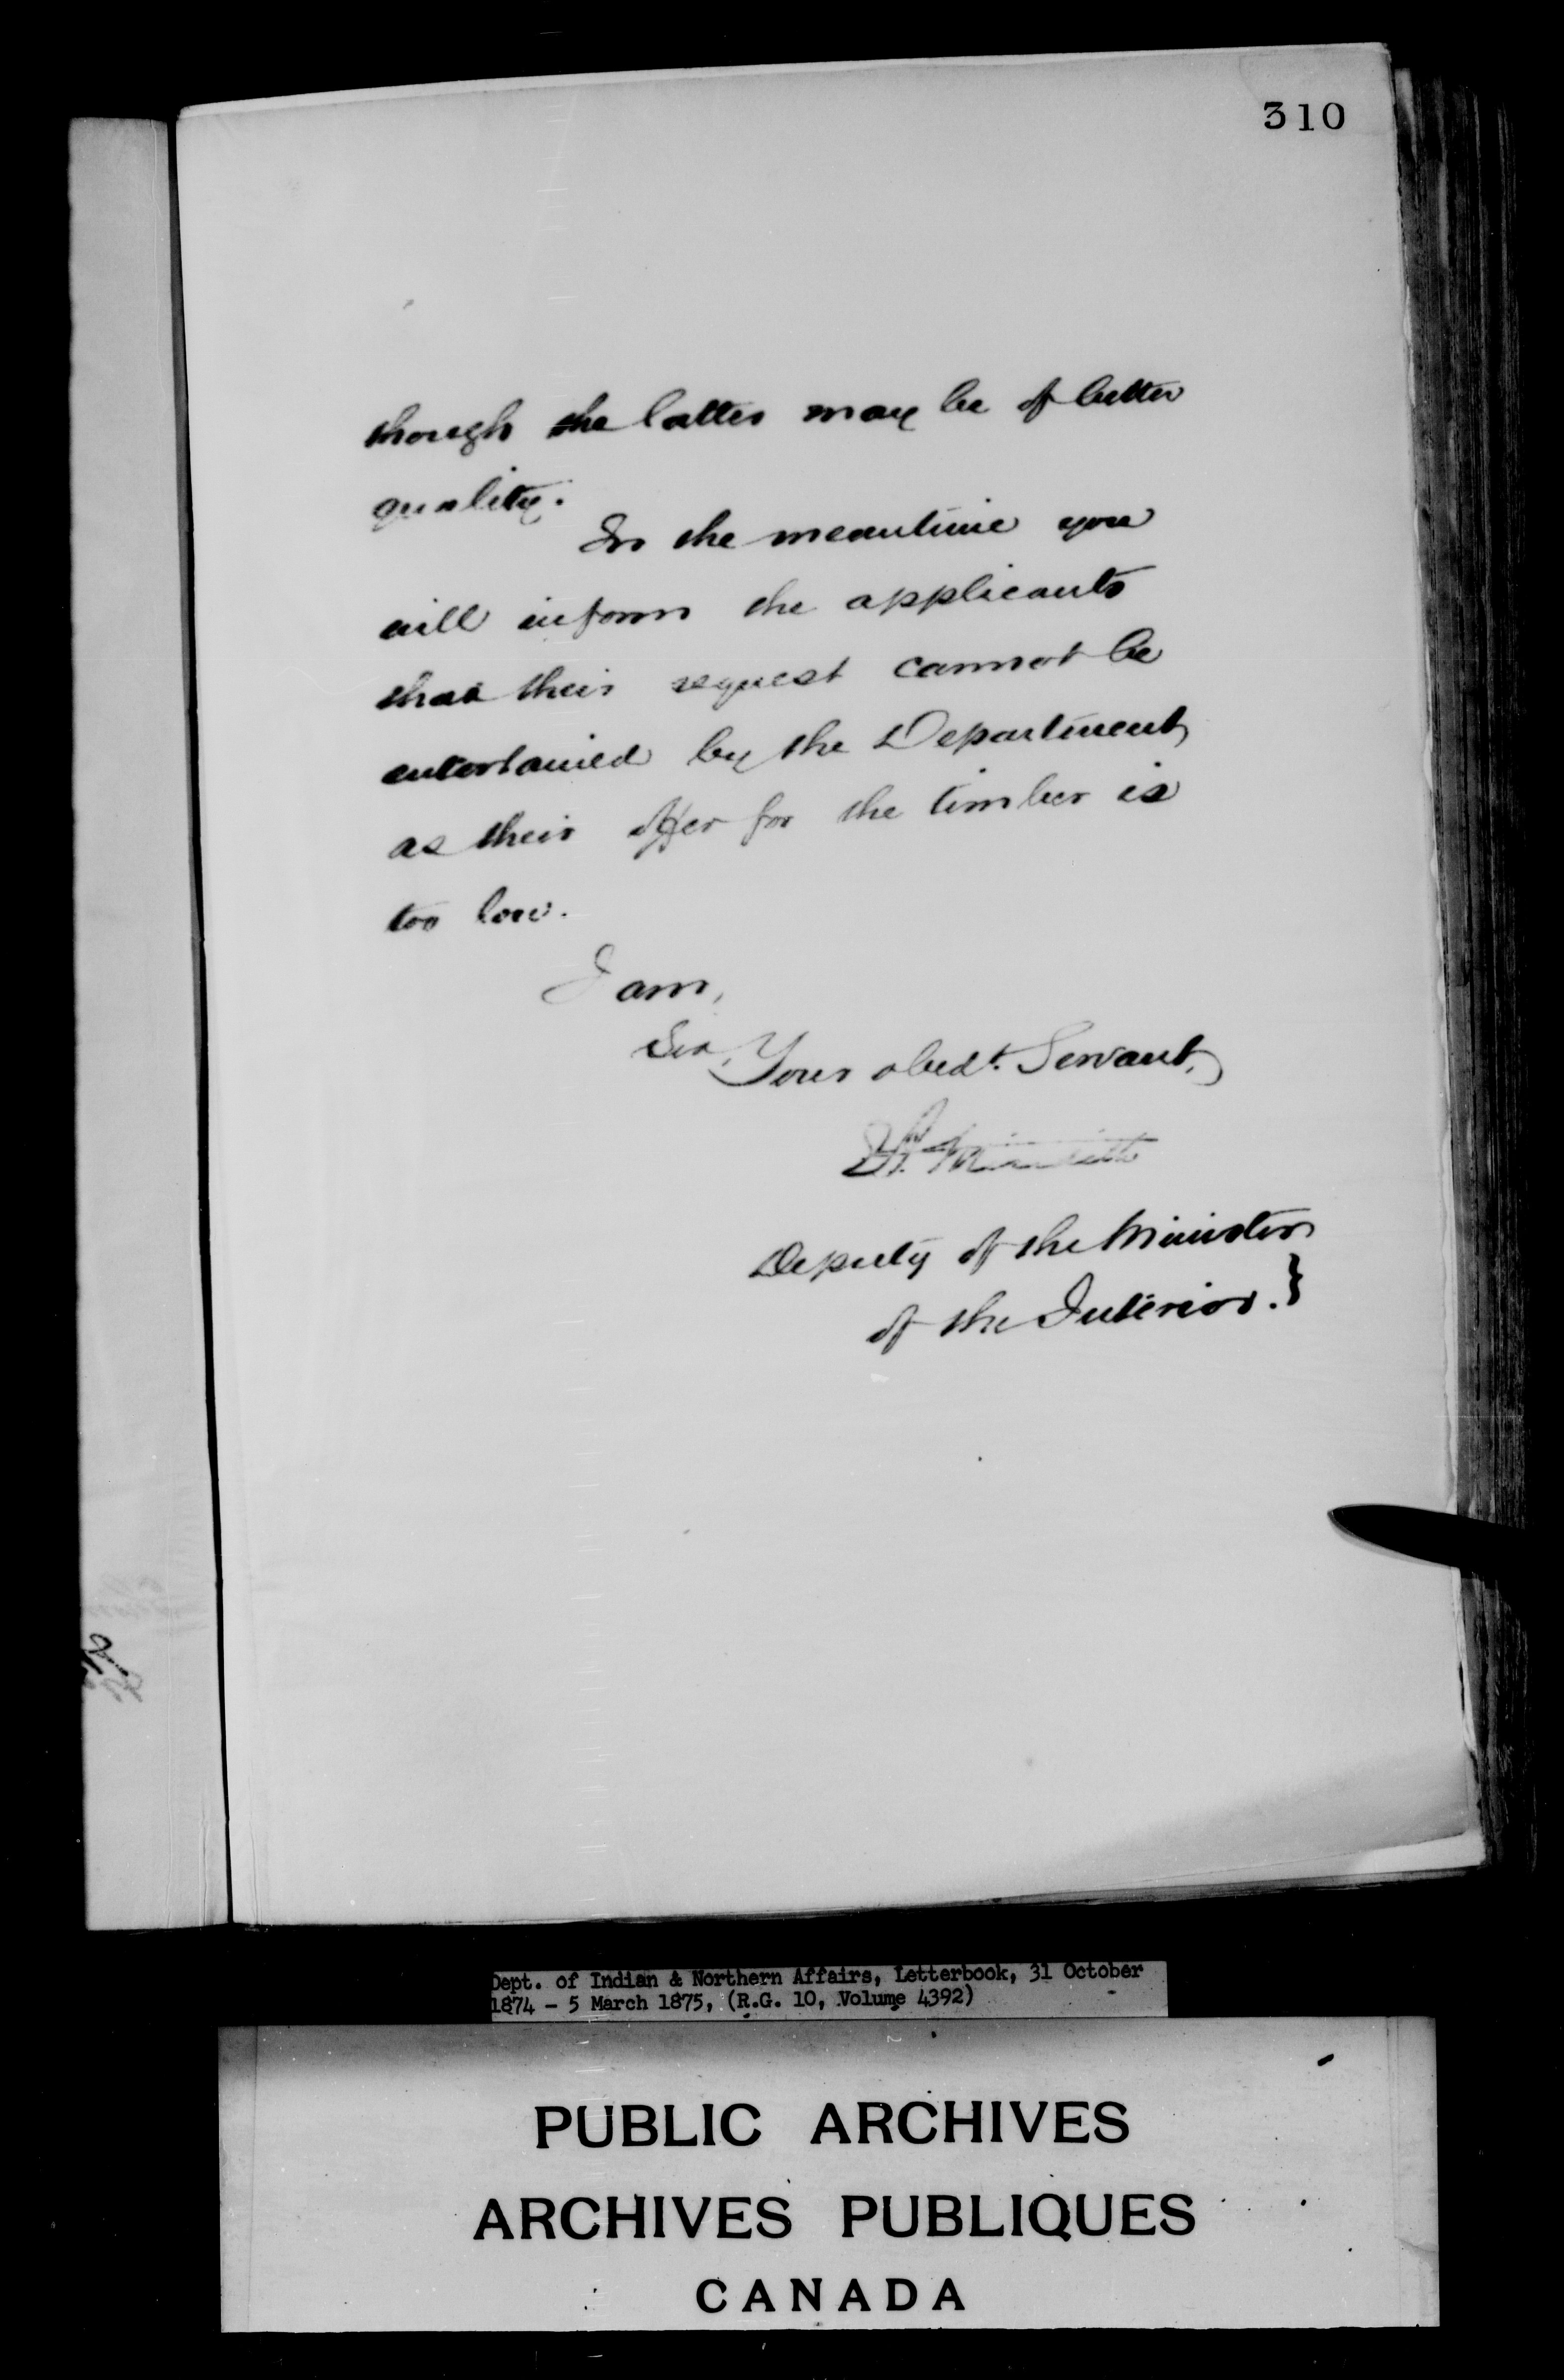 310
though the latter may be of better
quality.
In the meantime you
will inform the applicants
that their request cannot be
entertained by the Department,
as their offer for the timber is
too low.
I am,
Sir,
Your obedt. Servant,
Meredith
Deputy of the Minister
of the Interior. }
Dept. of Indian & Northern Affairs, Letterbook, 31 October
1874 - 5 March 1875, (R.G. 10, Volume 4392)
PUBLIC ARCHIVES
ARCHIVES PUBLIQUES
CANADA